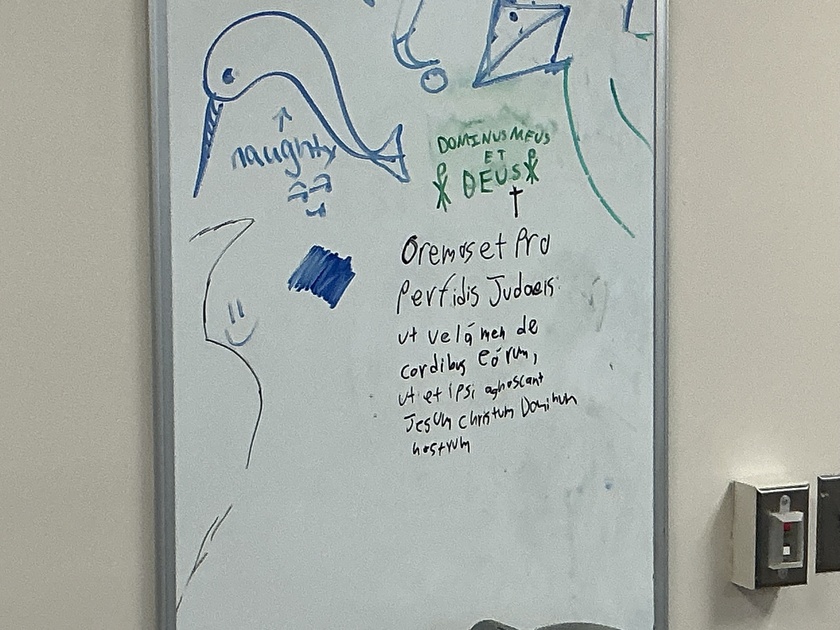 naughty
DOMINUS MEUS
ET
DEUS
Oremus et Pro
Perfidis Judaeis
ut velámen de
cordibus eórum,
ut et ipsi agnoscant
Jesum christum Dominum
nostrum